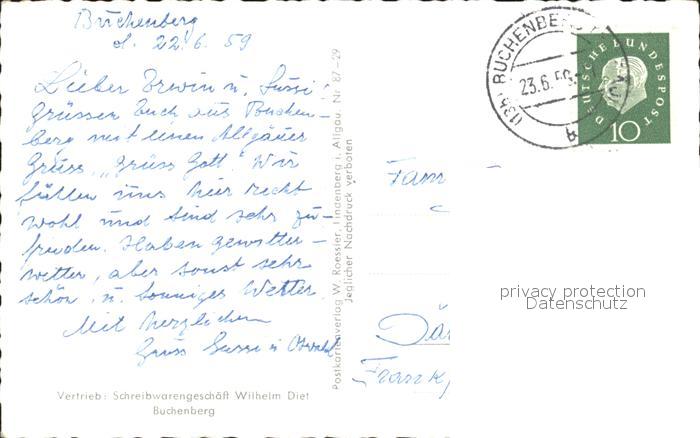 Buchenberg
d. 22.6.59
Lieber Erwin u. Sussi!
Grüssen Euch aus Buchen-
berg mit einen Allgäuer
Gruss, "Grüss Gott". Wir
fühlen uns hier recht
wohl und sind sehr zu-
frieden. Haben gewitter-
wetter, aber sonst sehr
schön u. sonniges Wetter.
Mit herzlichen
Gruss Sussi u Oswald
Vertrieb: Schreibwarengeschäft Wilhelm Diet
Buchenberg
Postkartenverlag W. Roessler, Lindenberg i. Allgäu. Nr. 87-29
Jeglicher Nachdruck verboten
(13b) BUCHENBERG
23.6.59
DEUTSCHE BUNDESPOST
10
Fam
privacy protection
Datenschutz
Frank